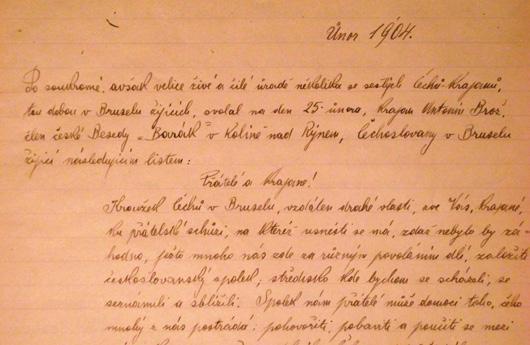 Únor 1904.
Po soukromé, avšak velice živé a čilé úradě několika se sestých Čechů-Krajanů,
tou dobou v Bruselu žijících, svolal na den 25. února, Krajan Antonín Brož,
člen české Besedy „Borák" v Kolíně nad Rýnem, Čechoslovany v Bruselu
žijící následujícím listem:
Přátelé a Krajané!
Kroužek Čechů v Bruselu, vzdálen drahé vlasti, zve Vás, Krajané,
ku přátelské schůzi, na kteréž usnésti se má, zdaž nebylo by zá-
hodno, jsouc mnoho nás zde za různým povoláním dlí, založiti
českoslovanský spolek; středisko kde bychom se scházeli, se
seznámili a sblížili. Spolek nám přátelé může domoci toho, čeho
mnohý z nás postrádá: pohovořiti, pobaviti a poučiti se mezi